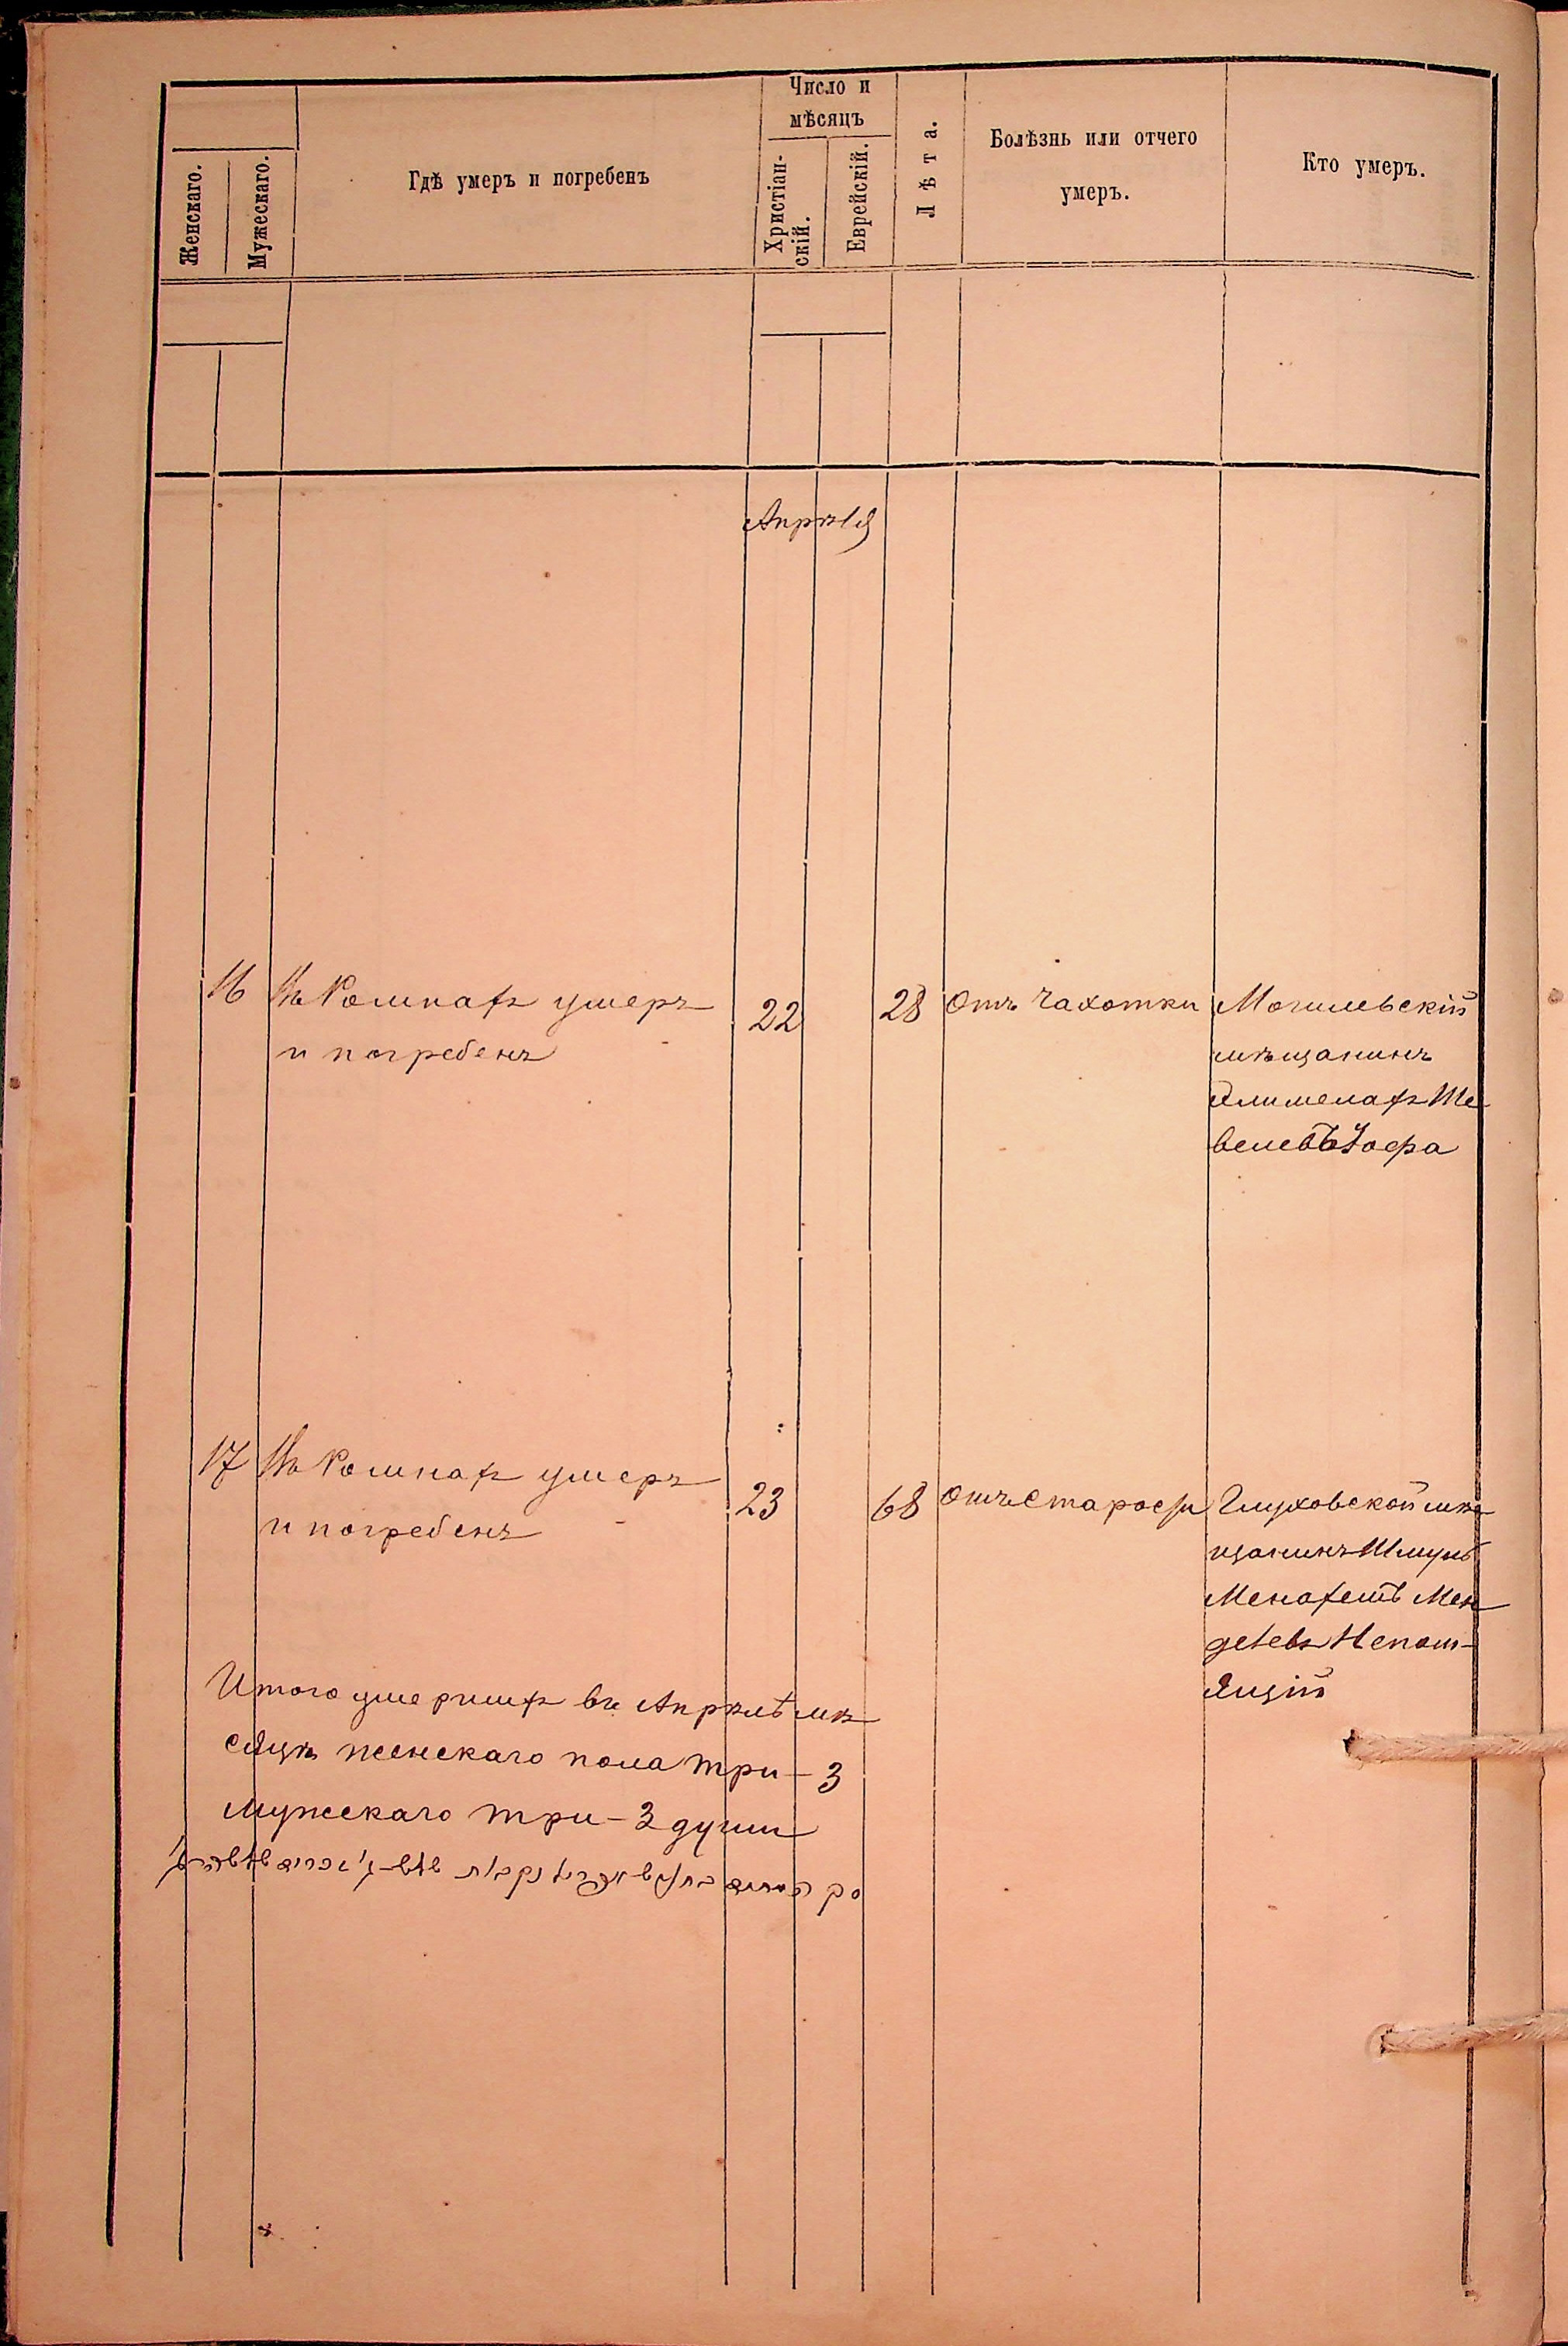 Женскаго.
Мужескаго.
Гдѣ умеръ и погребенъ
Число и
мѣсяцъ
Христіан-
скій.
Еврейскій.
Лѣта.
Болѣзнь или отчего
умеръ.
Кто умеръ.
Апрѣля
16
Въ Ромнахъ умеръ
и погребенъ
22
28
Отъ Чахотки
Могилевскій
мѣщанинъ
Ше
велевъ Іофа
17
Въ Ромнахъ умеръ
и погребенъ
23
68
отъ Старости
Глуховской мѣ
щанинъ Шмуль
Менахемъ Мен
делевъ Непом-
ящій
Итого умершихъ въ Апрѣлѣ мѣ
сяцѣ женскаго пола три - 3
мужскаго три - 3 души